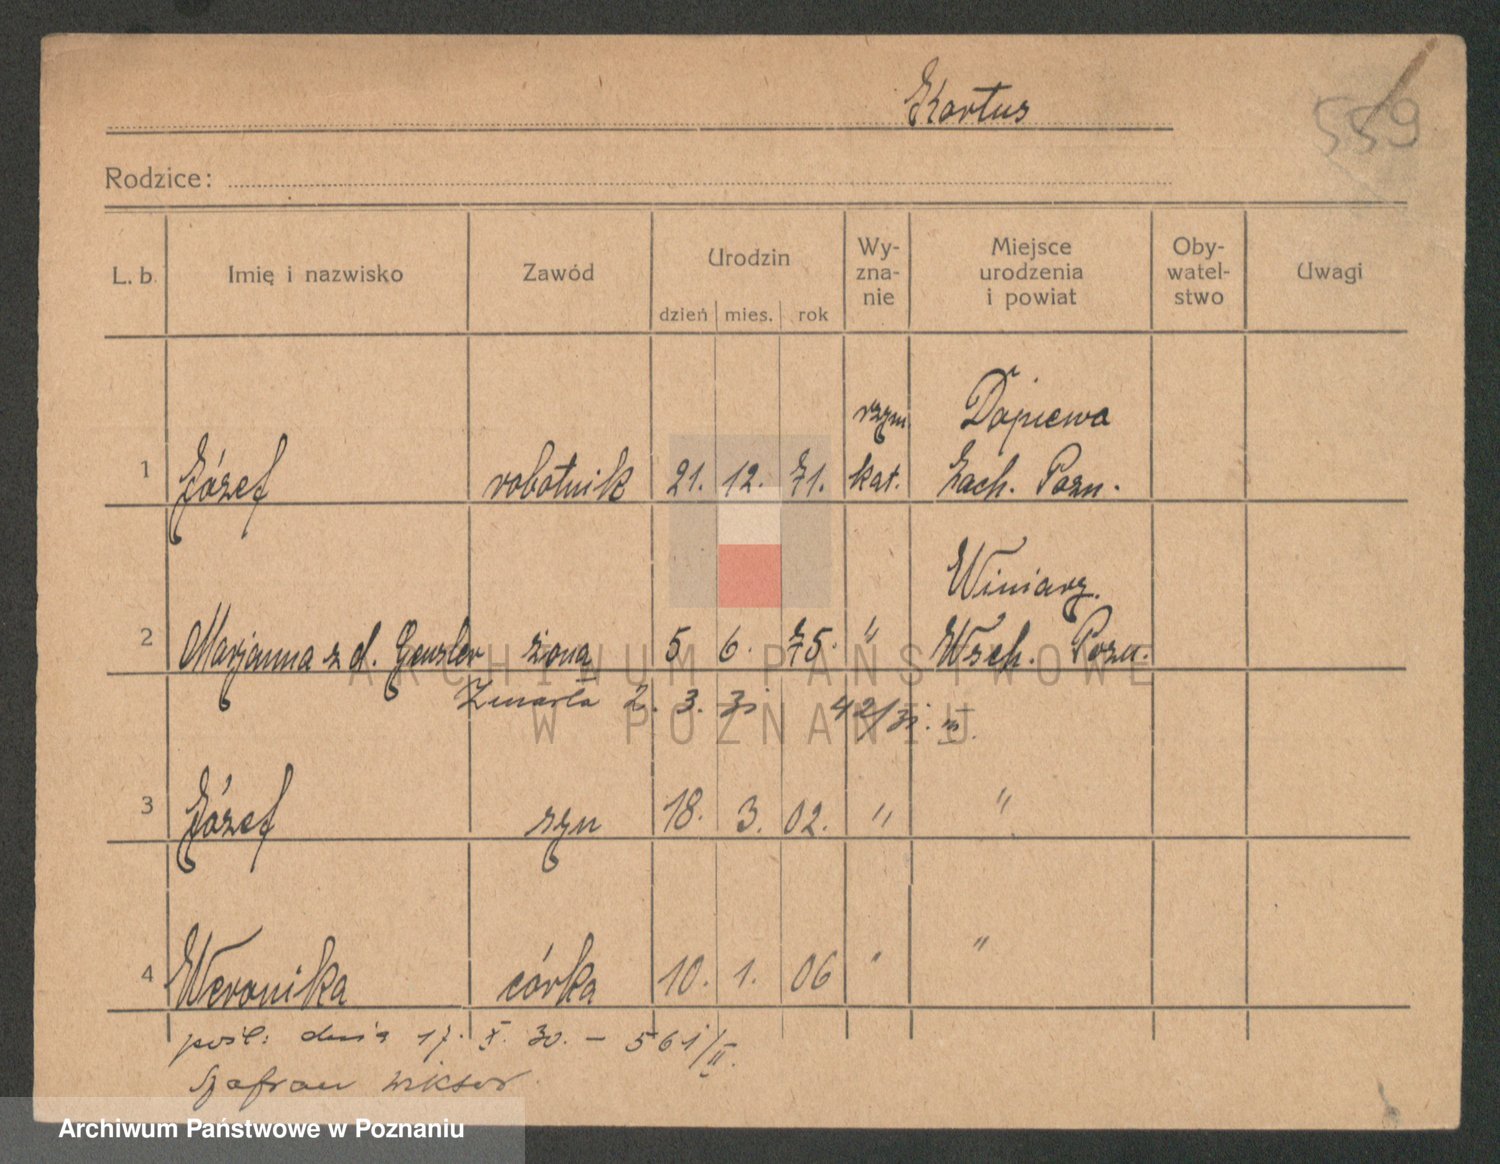 Kortus
559
Rodzice:
L. b. Imię i nazwisko Zawód Urodzin dzień mies. rok Wy-zna-nie Miejsce urodzenia i powiat Oby-watel-stwo Uwagi
rzym. Dopiewo
1 Józef robotnik 21. 12. 71. kat. Zach. Pozn.
Winiary.
2 Marjanna z d. Genzler żona 5 6. 75. " Wsch. Pozn.
Zmarła 2. 3. 31 42/31. III.
ARCHIWUM PAŃSTWOWE
W POZNANIU
3 Józef syn 18. 3. 02. " "
4 Weronika córka 10. 1. 06 " "
pośl: dnia 17. X. 30. – 561/II.
Szafran Wiktor.
Archiwum Państwowe w Poznaniu